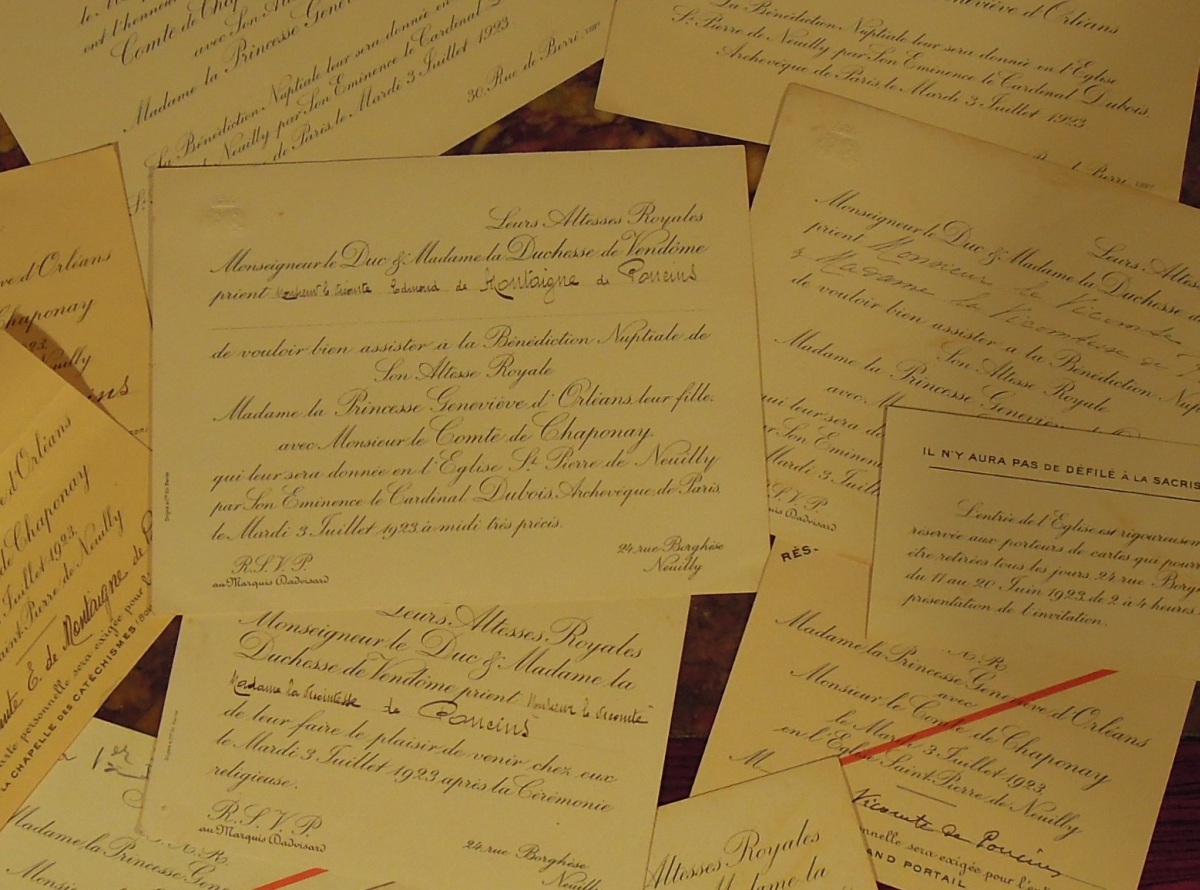 ont l'honneur
Comte de Chap
avec Son A
Madame la Princesse Gene
La Bénédiction Nuptiale leur sera donnée en
Neuilly par Son Eminence le Cardinal
de Paris, le Mardi 3 Juillet 1923
30, Rue de Berri
eviève d'Orléans
La Bénédiction Nuptiale leur sera donnée en l'Eglise
St Pierre de Neuilly par Son Eminence le Cardinal Dubois,
Archevêque de Paris, le Mardi 3 Juillet 1923
Berri
Leurs Altesses Royales
Monseigneur le Duc & Madame la Duchesse de Vendôme
prient Monsieur le Vicomte Edmond de Montaigne de Poncins
de vouloir bien assister à la Bénédiction Nuptiale de
Son Altesse Royale
Madame la Princesse Geneviève d'Orléans, leur fille,
avec Monsieur le Comte de Chaponay,
qui leur sera donnée en l'Eglise St Pierre de Neuilly
par Son Eminence le Cardinal Dubois, Archevêque de Paris,
le Mardi 3 Juillet 1923, à midi très précis.
R.S.V.P.
au Marquis Dadvisard
24, rue Borghèse
Neuilly
Leurs Altes
Monseigneur le Duc & Madame la Duchesse d
prient Monsieur le Vicomte
& Madame la Vicomtesse de
de vouloir bien assister à la Bénédiction Nup
Son Altesse Royale
Madame la Princesse Geneviève
avec M
qui leur sera do
ar Son Eminen
Mardi 3 Juill
S.V.P.
uis Dadvisard
IL N'Y AURA PAS DE DÉFILÉ À LA SACRIS
L'entrée de l'Eglise est rigoureusem
réservée aux porteurs de cartes qui pourr
être retirées tous les jours, 24, rue Borg
du 11 au 20 Juin 1923, de 2 à 4 heures
présentation de l'invitation.
ve d'Orléans
Chaponay
1923,
Neuilly
ins
e d'Orléans
de Chaponay
Juillet 1923,
Saint-Pierre de Neuilly
mte E. de Montaigne de P
arte personnelle sera exigée pour l
LA CHAPELLE DES CATÉCHISMES
Leurs Altesses Royales
Monseigneur le Duc & Madame la
Duchesse de Vendôme prient Monsieur le Vicomte
Madame la Vicomtesse de Poncins
de leur faire le plaisir de venir chez eux
le Mardi 3 Juillet 1923 après la Cérémonie
religieuse.
R.S.V.P.
au Marquis Dadvisard
24, rue Borghèse
Neuilly
RÉS-
N.R.
Madame la Princesse Geneviève d'Orléans
avec
Monsieur le Comte de Chaponay
le Mardi 3 Juillet 1923,
en l'Eglise Saint-Pierre de Neuilly
M
Vicomte de Poncins
nnelle sera exigée pour l'en
AND PORTAIL
1er
N.R.
Madame la Princesse Gen
Monsi
Altesses Royales
dame la